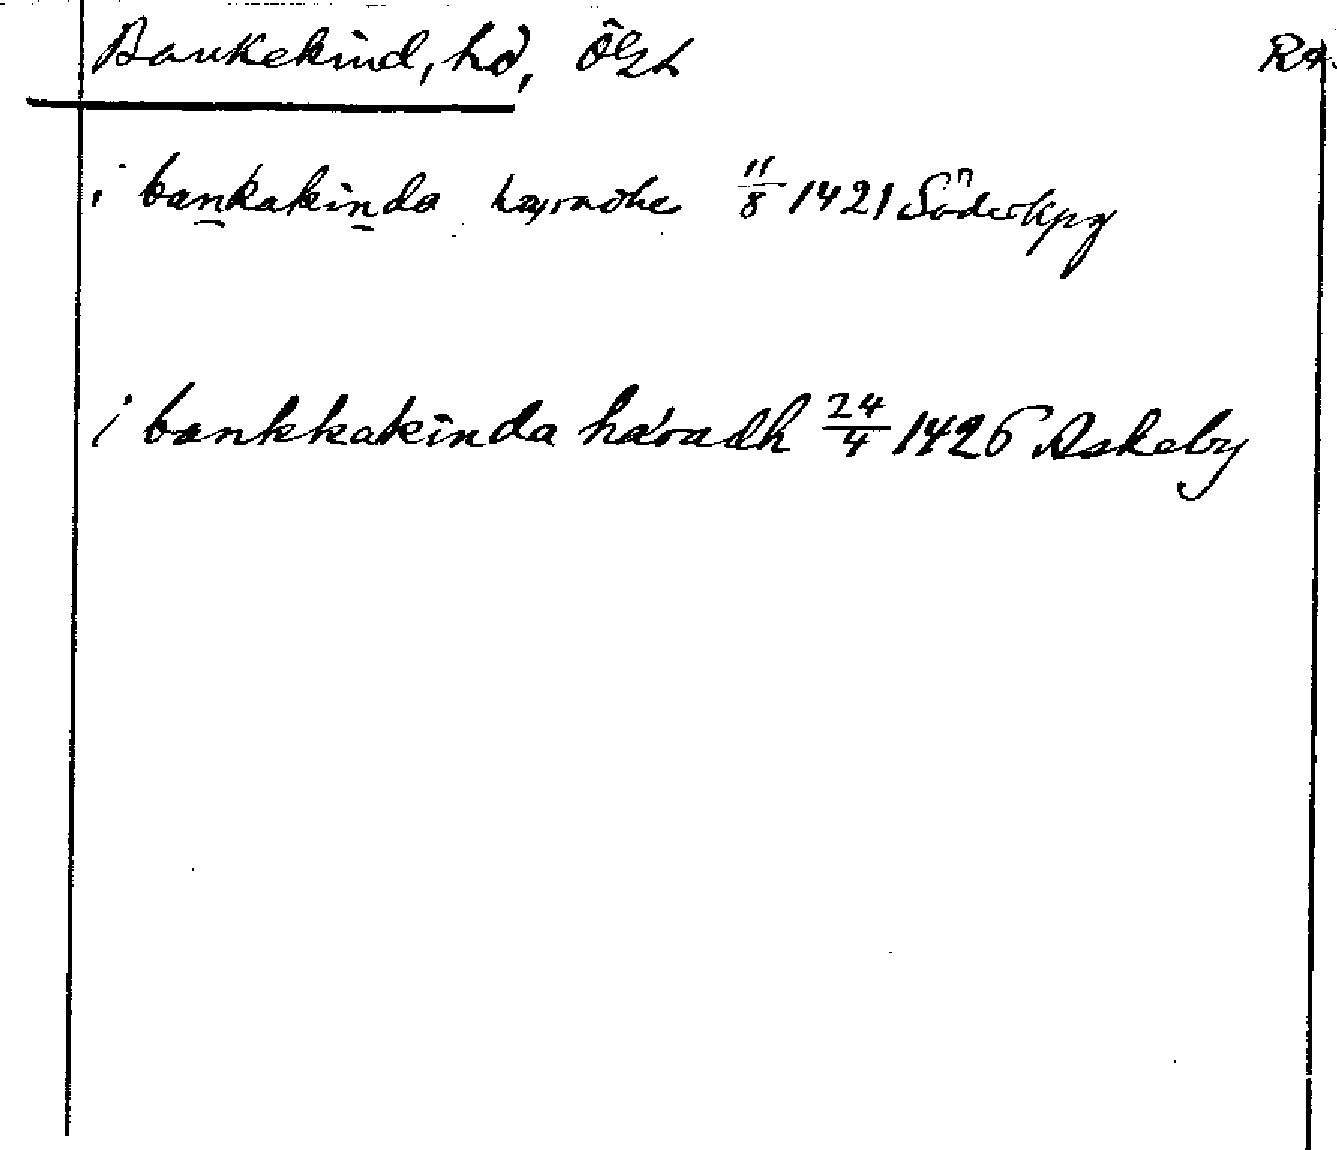 Bankekind, hd, Ögtl
i bankakinda hæradhe 11/8 1421 Söderkpg
i bankkakinda háradh 24/4 1426 Askeby